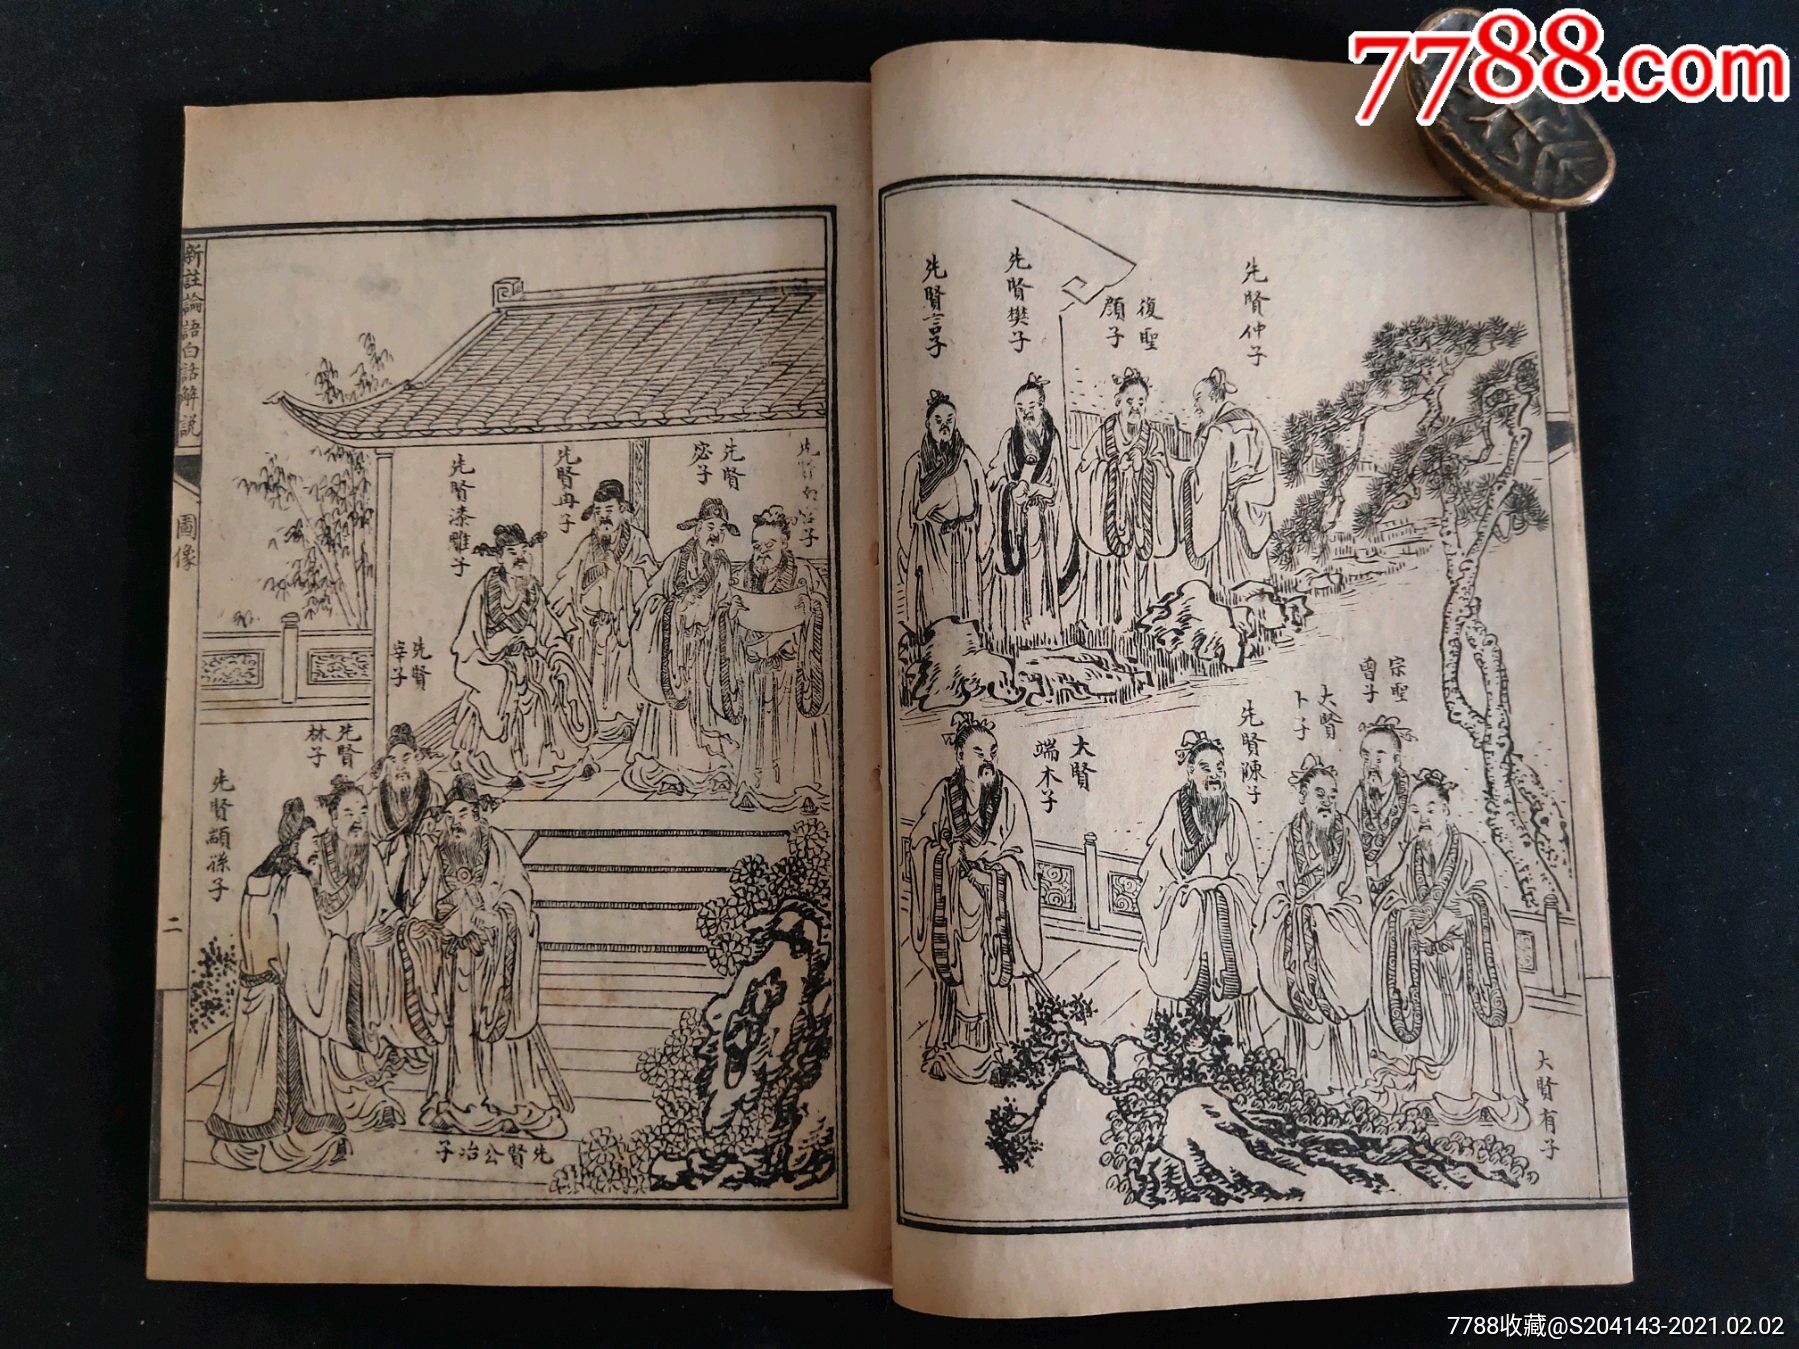 7788.com
先賢仲子
復聖
顏子
先賢樊子
先賢言子
宗聖
曾子
大賢
卜子
先賢陳子
大賢
端木子
大賢有子
先賢
宓子
先賢冉子
先賢漆雕子
先賢
宰子
先賢
林子
先賢顓孫子
先賢公冶子
新註論語白話解説
圖像
二
7788收藏@S204143-2021.02.02